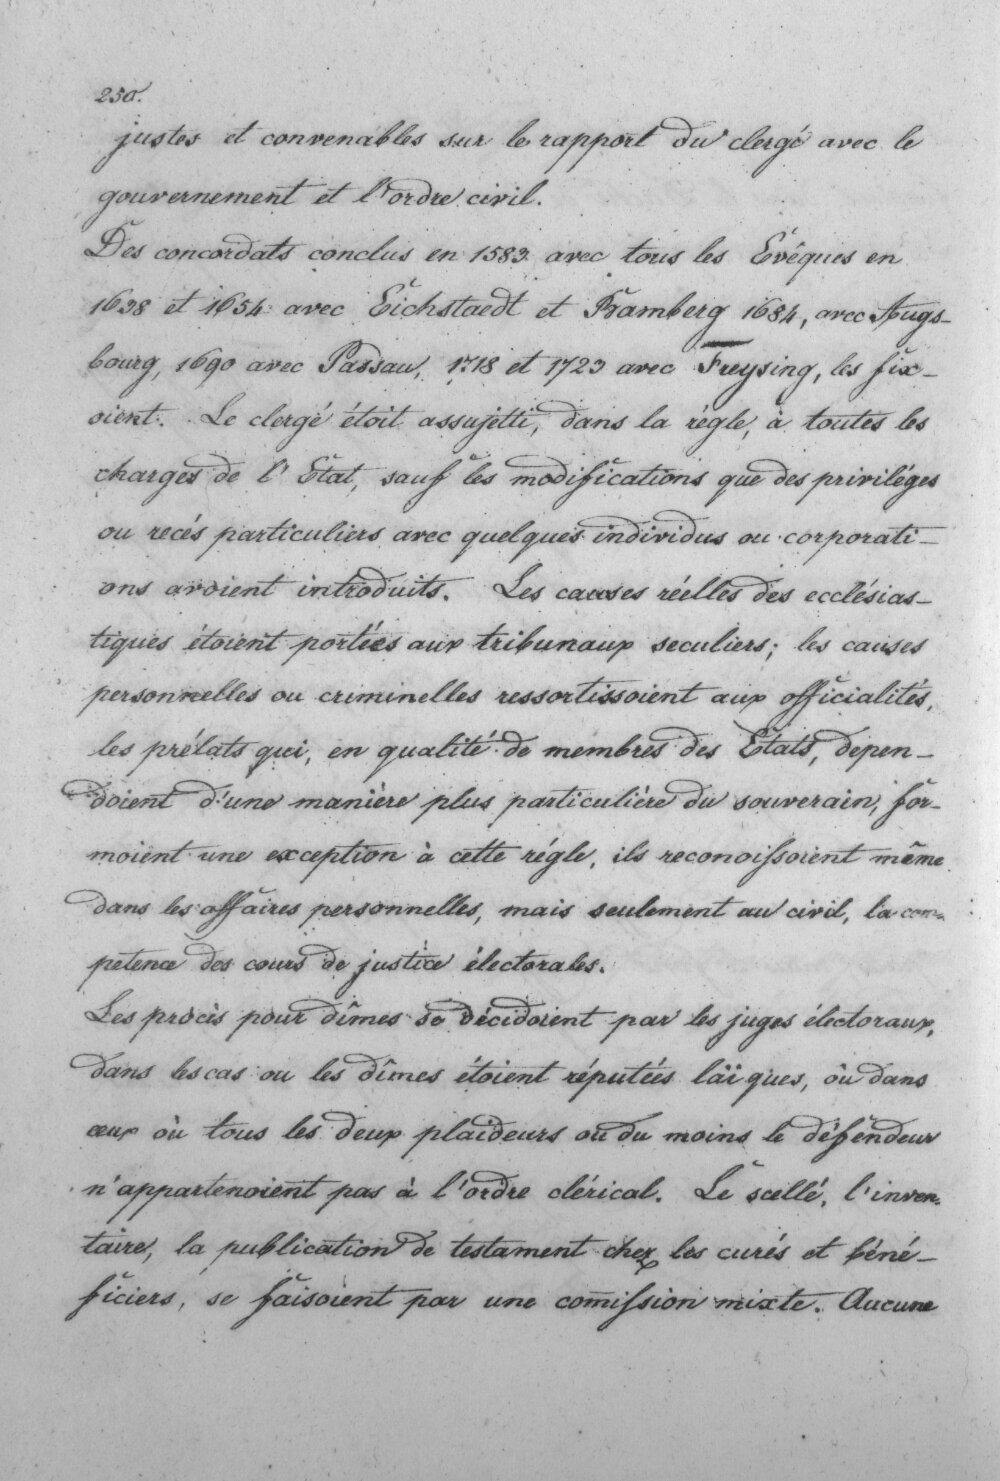 250.
justes et convenables sur le rapport du clergé avec le
gouvernement et l'ordre civil.
Des concordats conclus en 1583 avec tous les Evêques en
1638 et 1654 avec Eichstaedt et Bamberg 1684, avec Augs-
bourg, 1690 avec Passau, 1718 et 1723 avec Freysing, les fix-
oient. Le clergé étoit assujetti, dans la régle, à toutes les
charges de l'Etat, sauf les modifications que des priviléges
ou recés particuliers avec quelques individus ou corporati-
ons avoient introduits. Les causes réelles des ecclésias-
tiques étoient portées aux tribunaux seculiers; les causes
personnelles ou criminelles ressortissoient aux officialités,
les prélats qui, en qualité de membres des Etats, depen-
doient d'une manière plus particulière du souverain, for-
moient une exception à cette régle, ils reconoissoient même
dans les affaires personnelles, mais seulement au civil, la com-
petence des cours de justice électorales.
Les procès pour dîmes se décidoient par les juges électoraux,
dans les cas ou les dîmes étoient réputées läiques, où dans
ceux où tous les deux plaideurs ou du moins le défendeur
n'appartenoient pas à l'ordre clérical. Le scellé, l'inven-
taire, la publication de testament chez les curés et béné-
ficiers, se faisoient par une com̅ission mixte. Aucune